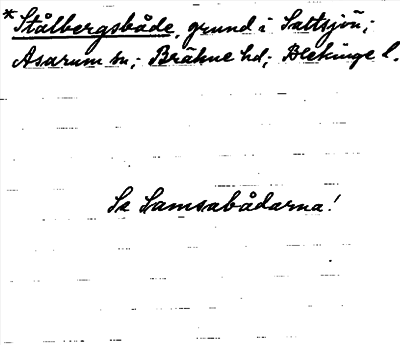 *Stålbergsbåde, grund i Saltsjön;
Asarum sn; Bräkne hd; Blekinge l.
Se Samsabådarna!